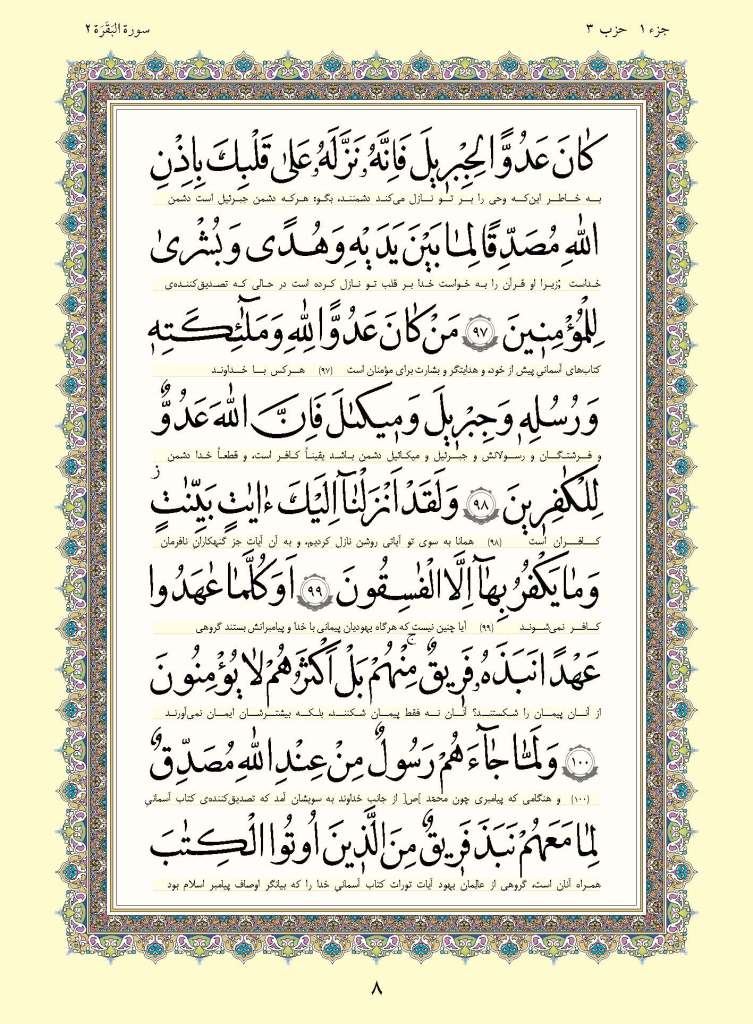 جزء ۱ حزب ۳ سورة البَقَرَة ۲
كانَ عَدُوًّا لِجِبْرِيلَ فَاِنَّهُ نَزَّلَهُ عَلىٰ قَلْبِكَ بِاِذْنِ
به خاطر این‌که وحی را بر تو نازل می‌کند دشمنند، بگو: هرکه دشمن جبرئیل است دشمن
اللهِ مُصَدِّقًا لِما بَيْنَ يَدَيْهِ وَهُدًى وَبُشْرىٰ
خداست ؛زیرا او قرآن را به خواست خدا بر قلب تو نازل کرده است در حالی که تصدیق‌کننده‌ی
لِلْمُؤْمِنِينَ ۹۷ مَنْ كانَ عَدُوًّا لِلّٰهِ وَمَلٰٓئِكَتِهِ
کتاب‌های آسمانی پیش از خود، و هدایتگر و بشارت برای مؤمنان است (۹۷) هرکس با خداوند
وَرُسُلِهِ وَجِبْرِيلَ وَمِيكىٰلَ فَاِنَّ اللهَ عَدُوٌّ
و فرشتگان و رسولانش و جبرئیل و میکائیل دشمن باشد یقیناً کافر است، و قطعاً خدا دشمن
لِلْكٰفِرِينَ ۹۸ وَلَقَدْ اَنْزَلْنآ اِلَيْكَ ءايٰتٍ بَيِّنٰتٍ ز
کافران است (۹۸) همانا به سوی تو آیاتی روشن نازل کردیم، و به آن آیات جز گنهکاران نافرمان
وَما يَكْفُرُ بِهآ اِلَّا الْفٰسِقُونَ ۹۹ اَوَكُلَّما عٰهَدُوا
کافر نمی‌شوند (۹۹) آیا چنین نیست که هرگاه یهودیان پیمانی با خدا و پیامبرانش بستند گروهی
عَهْدًا نَبَذَهُ فَرِيقٌ مِنْهُمْ ج بَلْ اَكْثَرُهُمْ لا يُؤْمِنُونَ
از آنان پیمان را شکستند؟ آنان نه فقط پیمان شکنند، بلکه بیشترشان ایمان نمی‌آورند
۱۰۰ وَلَمّا جآءَهُمْ رَسُولٌ مِنْ عِنْدِ اللهِ مُصَدِّقٌ
(۱۰۰) و هنگامی که پیامبری چون محمّد ]ص[ از جانب خداوند به سویشان آمد که تصدیق‌کننده‌ی کتاب آسمانی
لِما مَعَهُمْ نَبَذَ فَرِيقٌ مِنَ الَّذِينَ اُوتُوا الْكِتٰبَ
همراه آنان است، گروهی از عالِمان یهود آیات تورات کتاب آسمانی خدا را که بیانگر اوصاف پیامبر اسلام بود
۸